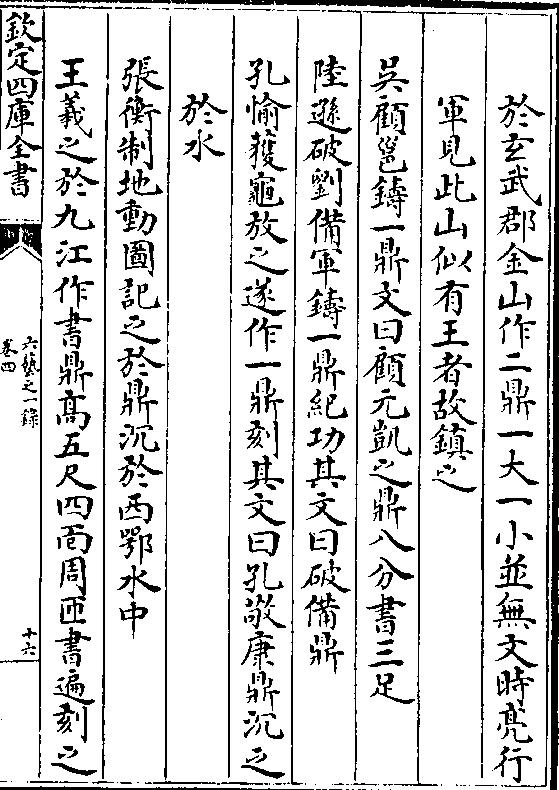 於玄武郡金山作二鼎一大一小並無文時亮行
軍見此山似有王者故鎮之
吳顧邕鑄一鼎文曰顧元凱之鼎八分書三足
陸遜破劉備軍鑄一鼎紀功其文曰破備鼎
孔愉獲龜放之遂作一鼎刻其文曰孔敬康鼎沉之
於水
張衡制地動圖記之於鼎沉於西鄂水中
王羲之於九江作書鼎高五尺四面周匝書遍刻之
欽定四庫全書
六藝之一錄
卷四
十六